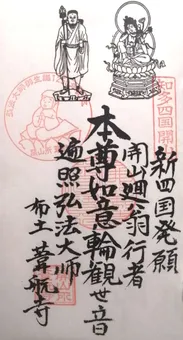 知多四国開
新四国発願
開山廻翁行者
本尊如意輪観世音
遍照弘法大師
布土 葦航寺